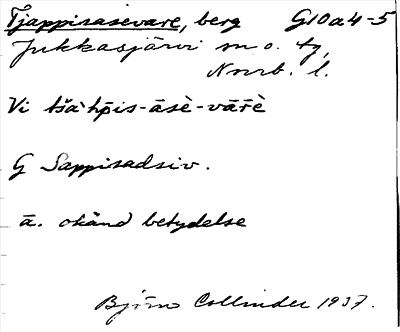 Tjappisasevare, berg G10a4-5
Jukkasjärvi sn o. tg,
Nnrb. l.
Vi tša·hp̄is-āsè-vārè
G Sappisadsiv.
ā. okänd betydelse
Björn Collinder 1937.